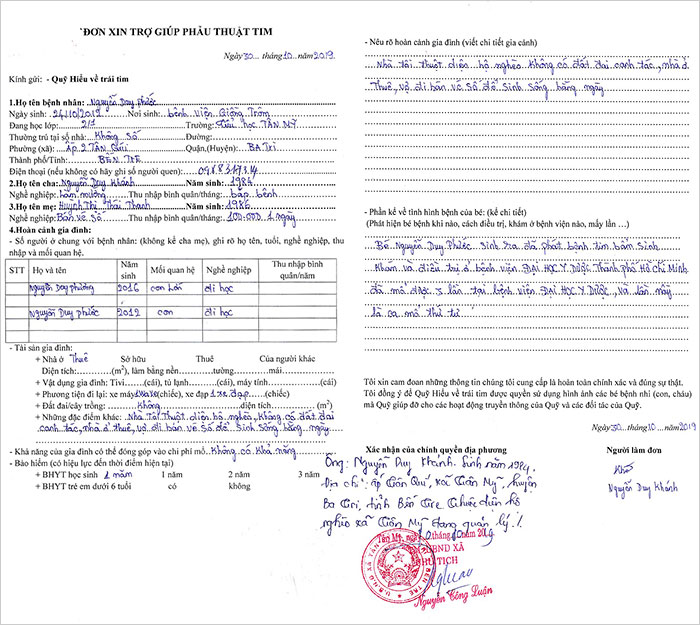 ĐƠN XIN TRỢ GIÚP PHẪU THUẬT TIM
Ngày 30 tháng 10 năm 2019
Kính gửi: - Quỹ Hiểu về trái tim
1.Họ tên bệnh nhân: Nguyễn Duy Phước
Ngày sinh: 24/10/2012 Nơi sinh: bệnh viện Giồng Trôm
Đang học lớp: 2/1 Trường: Tiểu học TÂN MỸ
Thường trú tại số nhà: Không số Đường:
Phường (xã): Ấp 2 TÂN Quí Quận,(Huyện): BA Tri
Thành phố/Tỉnh: BẾN TRE
Điện thoại (nếu không có hãy ghi số người quen):
2.Họ tên cha: Nguyễn Duy Khánh Năm sinh: 1984
Nghề nghiệp: làm mướng Thu nhập bình quân/tháng: bấp bênh
3.Họ tên mẹ: Huỳnh Thị Thái Thanh Năm sinh: 1986
Nghề nghiệp: Bán vé số Thu nhập bình quân/tháng: 100.000 1 ngày
4.Hoàn cảnh gia đình:
- Số người ở chung với bệnh nhân: (không kể cha mẹ), ghi rõ họ tên, tuổi, nghề nghiệp, thu
nhập và mối quan hệ.
STT Họ và tên Năm sinh Mối quan hệ Nghề nghiệp Thu nhập bình quân/năm
Nguyễn Duy phương 2016 con đi học
Nguyễn Duy phước 2012 con đi học
- Tài sản gia đình:
+ Nhà ở Thuê Sở hữu Thuê Của người khác
Diện tích:(m²), làm bằng nền tường mái
+ Vật dụng gia đình: Tivi(cái), tủ lạnh(cái), máy tính(cái)
+ Phương tiện đi lại: xe máy (chiếc), xe đạp 1 xe đạp (chiếc)
+ Đất đai/cây trồng: Không diện tích (m²)
+ Những đặc điểm khác: Nhà Tôi Thuột diện hộ nghèo, Không có đất đai
canh tác, nhà ở thuê, vợ đi bán vé số để Sinh Sống hằng ngày
- Khả năng của gia đình có thể đóng góp vào chi phí mổ: Không có Khả năng
- Bảo hiểm (có hiệu lực đến thời điểm hiện tại)
+ BHYT học sinh 1 năm 1 năm 2 năm 3 năm
+ BHYT trẻ em dưới 6 tuổi có không
- Nêu rõ hoàn cảnh gia đình (viết chi tiết gia cảnh)
Nhà tôi thuột diện hộ nghèo Không có đất đai canh tác, nhà ở
Thuê, vợ đi bán vé số để Sinh Sống hằng ngày
- Phần kể về tình hình bệnh của bé: (kể chi tiết)
(Phát hiện bé bệnh khi nào, cách điều trị, khám ở bệnh viện nào, mấy lần …)
Bé Nguyễn Duy Phước Sinh ra đã phát bệnh tim bẩm Sinh
Khán và điều trị ở bệnh viện ĐẠI HỌC Y DƯỢC Thành phố Hồ Chí Minh
đã mổ được 3 lần tại bệnh viện ĐẠI HỌC Y DƯỢC, và lần này
là ca mổ thứ tư
Tôi xin cam đoan những thông tin chúng tôi cung cấp là hoàn toàn chính xác và đúng sự thật.
Tôi đồng ý để Quỹ Hiểu về trái tim được quyền sử dụng hình ảnh các bé bệnh nhi (con, cháu)
mà Quỹ giúp đỡ cho các hoạt động truyền thông của Quỹ và các đối tác của Quỹ.
Ngày 30 tháng 10 năm 2019
Xác nhận của chính quyền địa phương
Người làm đơn
Ông: Nguyễn Duy Khánh. Sinh năm 1984.
Địa chỉ: ấp Tân Quí, xã Tân Mỹ, huyện
Ba Tri, tỉnh Bến Tre thuộc diện hộ
nghèo xã Tân Mỹ đang quản lý./.
Nguyễn Duy Khánh
Tân Mỹ, ngày tháng 10 năm 2019
UBND XÃ
CHỦ TỊCH
Nguyễn Công Luận